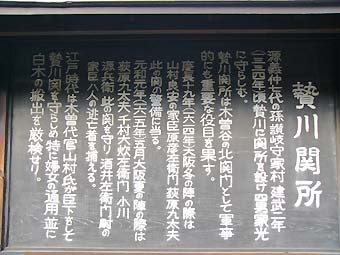 贄川関所
源義仲七代の孫讃岐守家村建武二年
(一三三四年)頃贄川に関所を設け四男家光
に守らしむ。
贄川関所は木曽谷の北関門として軍事
的にも重要な役目を果す。
慶長十九年(一六一四年)大阪冬の陣の際は
山村良安の家臣原彦左衛門 荻原九太夫
此の関の警備に当る。
元和元年(一六一五年)五月大阪夏の陣の際は
荻原九太夫 千村大炊左衛門 小川
源兵衛 此の関を守り 酒井左衛門尉の
家臣八人の逃亡者を捕える。
江戸時代は木曽代官山村氏が臣下をして
贄川関を守らしめ特に婦女の通用並に
白木の搬出を厳検せり。